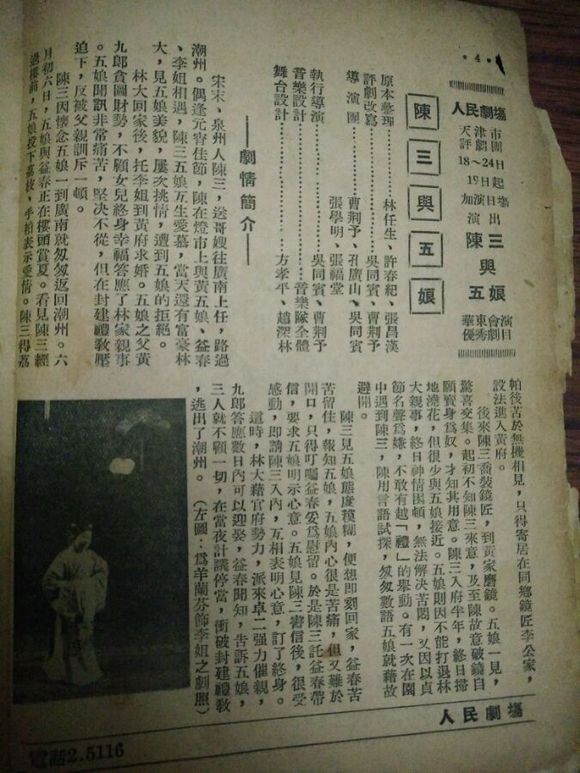 ·4·
人民劇場
天津市
評劇團
18～24日
陳三
與
五娘
華東會演
優秀劇目
陳三與五娘
原本整理………林任生、許春紀、張昌漢
評劇改寫………吳同賓、曹荆予
導演團………曹荆予、孔廣山、吳同賓
張學明、張福堂
執行導演………吳同賓、曹荆予
音樂設計………音樂隊全體
舞台設計………方孝平、趙深林
——劇情簡介——
宋末、泉州人陳三，送哥嫂往廣南上任，路過
潮州。偶逢元宵佳節，陳在燈市上與黃五娘、益春
、李姐相遇，陳三五娘互生愛慕，當天還有富豪林
大，見五娘美貌，屢次挑情，遭到五娘的拒絕。
林大回家後，托李姐到黃府求婚。五娘之父黃
九郎貪圖財勢，不顧女兒終身幸福答應了林家親事
。五娘聞訊非常痛苦，堅决不從，但在封建禮教壓
迫下，反被父親訓斥一頓。
陳三因懷念五娘一到廣南就匆匆返回潮州。六
月初六日，五娘與益春正在樓頭賞夏。看見陳三經
過樓前，五娘投下荔枝、手帕表示愛情。陳三得荔
帕後苦於無機相見，只得寄居在同鄉鏡匠李公家，
設法進入黃府。
後來陳三喬裝鏡匠，到黃家磨鏡。五娘一見，
驚喜交集。起初不知陳三來意，及至陳故意破鏡自
願賣身爲奴，才知其用意。陳三入府半年，終日掃
地澆花，但很少與五娘接近。五娘則因不能打退林
大親事，終日神情困頓，無法解決苦悶，又因以貞
節名聲爲嫌，不敢有越「禮」的舉動。有一次在園
中遇到陳三，陳用言語試探，匆匆數語五娘就藉故
避開。
陳三見五娘態度模糊，便想即刻回家，益春苦
苦留住，報知五娘，五娘內心很是苦痛，但又難於
開口，只得叮囑益春妥爲慰留。於是陳三託益春帶
信，要求五娘明示心意。五娘見陳三書信後，很受
感動，即請陳三入內，互相表明心意，訂了終身。
這時，林大藉官府勢力，派來卓二强力催親，
九郎答應數日內可以迎娶，益春聞知，告訴五娘，
三人就不顧一切，在當夜計議停當，衝破封建禮教
，逃出了潮州。（左圖：爲羊蘭芬飾李姐之劇照）
人民劇場
電話2.5116